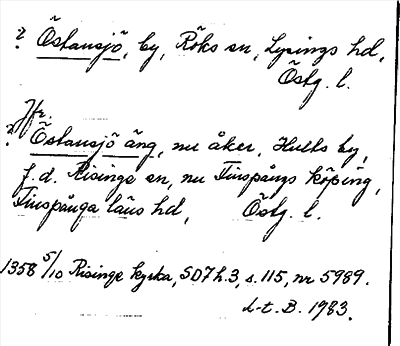 ? Östansjö, by, Röks sn, Lysings hd,
Östg. l.
Jfr.
? Östansjö äng, nu åker, Hults by,
f. d. Risinge sn, nu Finspångs köping,
Finspånga läns hd, Östg. l.
1358 5/10 Risinge kyrka, SD7 h.3, s. 115, nr 5989.
d-t. B. 1983.